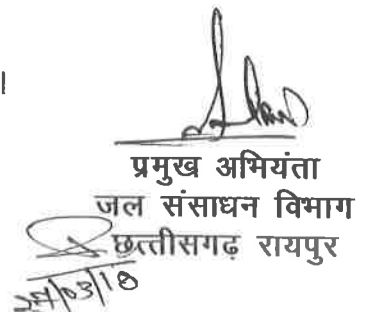 ।
प्रमुख अभियंता
जल संसाधन विभाग
छत्तीसगढ़ रायपुर
27/03/18